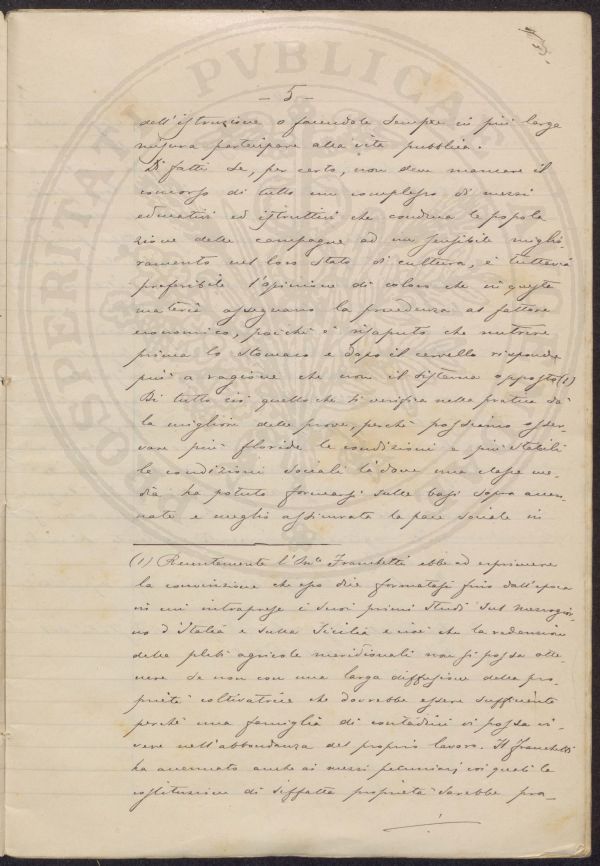 - 5 -
dell'istruzione o facendole sempre in più larga
misura partecipare alla vita pubblica.
Di fatti se, per certo, non deve mancare il
concorso di tutto un complesso di mezzi
educativi ed istruttivi che conduca le popola
zione delle campagne ad un sensibile miglio-
ramento nel loro stato di cultura, è tuttavia
preferibile l'opinione di coloro che in queste
materie assegnano la precedenza al fattore
economico, poichè è risaputo che nutrire
prima lo stomaco e dopo il cervello risponde
più a ragione che non il sistema opposto (1)
Di tutto ciò quello che si verifica nella pratica dà
la migliore delle prove, perchè possiamo osser-
vare più floride le condizioni e più stabili
le condizioni sociali là dove una classe me-
dia ha potuto formarsi sulle basi sopra accen-
nate e meglio assicurata la pace sociale in
(1) Recentemente l'On.le Franchetti ebbe ad esprimere
la convinzione che esso dice formatasi fino dall'epoca
in cui intraprese i suoi primi studi sul mezzogior-
no d'Italia e sulla Sicilia e cioè che la redenzione
delle plebi agricole meridionali non si possa otte-
nere se non con una larga diffusione della pro-
prietà coltivatrice che dovrebbe essere sufficiente
perchè una famiglia di contadini vi possa vi-
vere nell'abbondanza del proprio lavoro. Il Franchetti
ha accennato anche ai mezzi pecuniari coi quali la
costituzione di siffatta proprietà sarebbe pro-
PVBLICAE